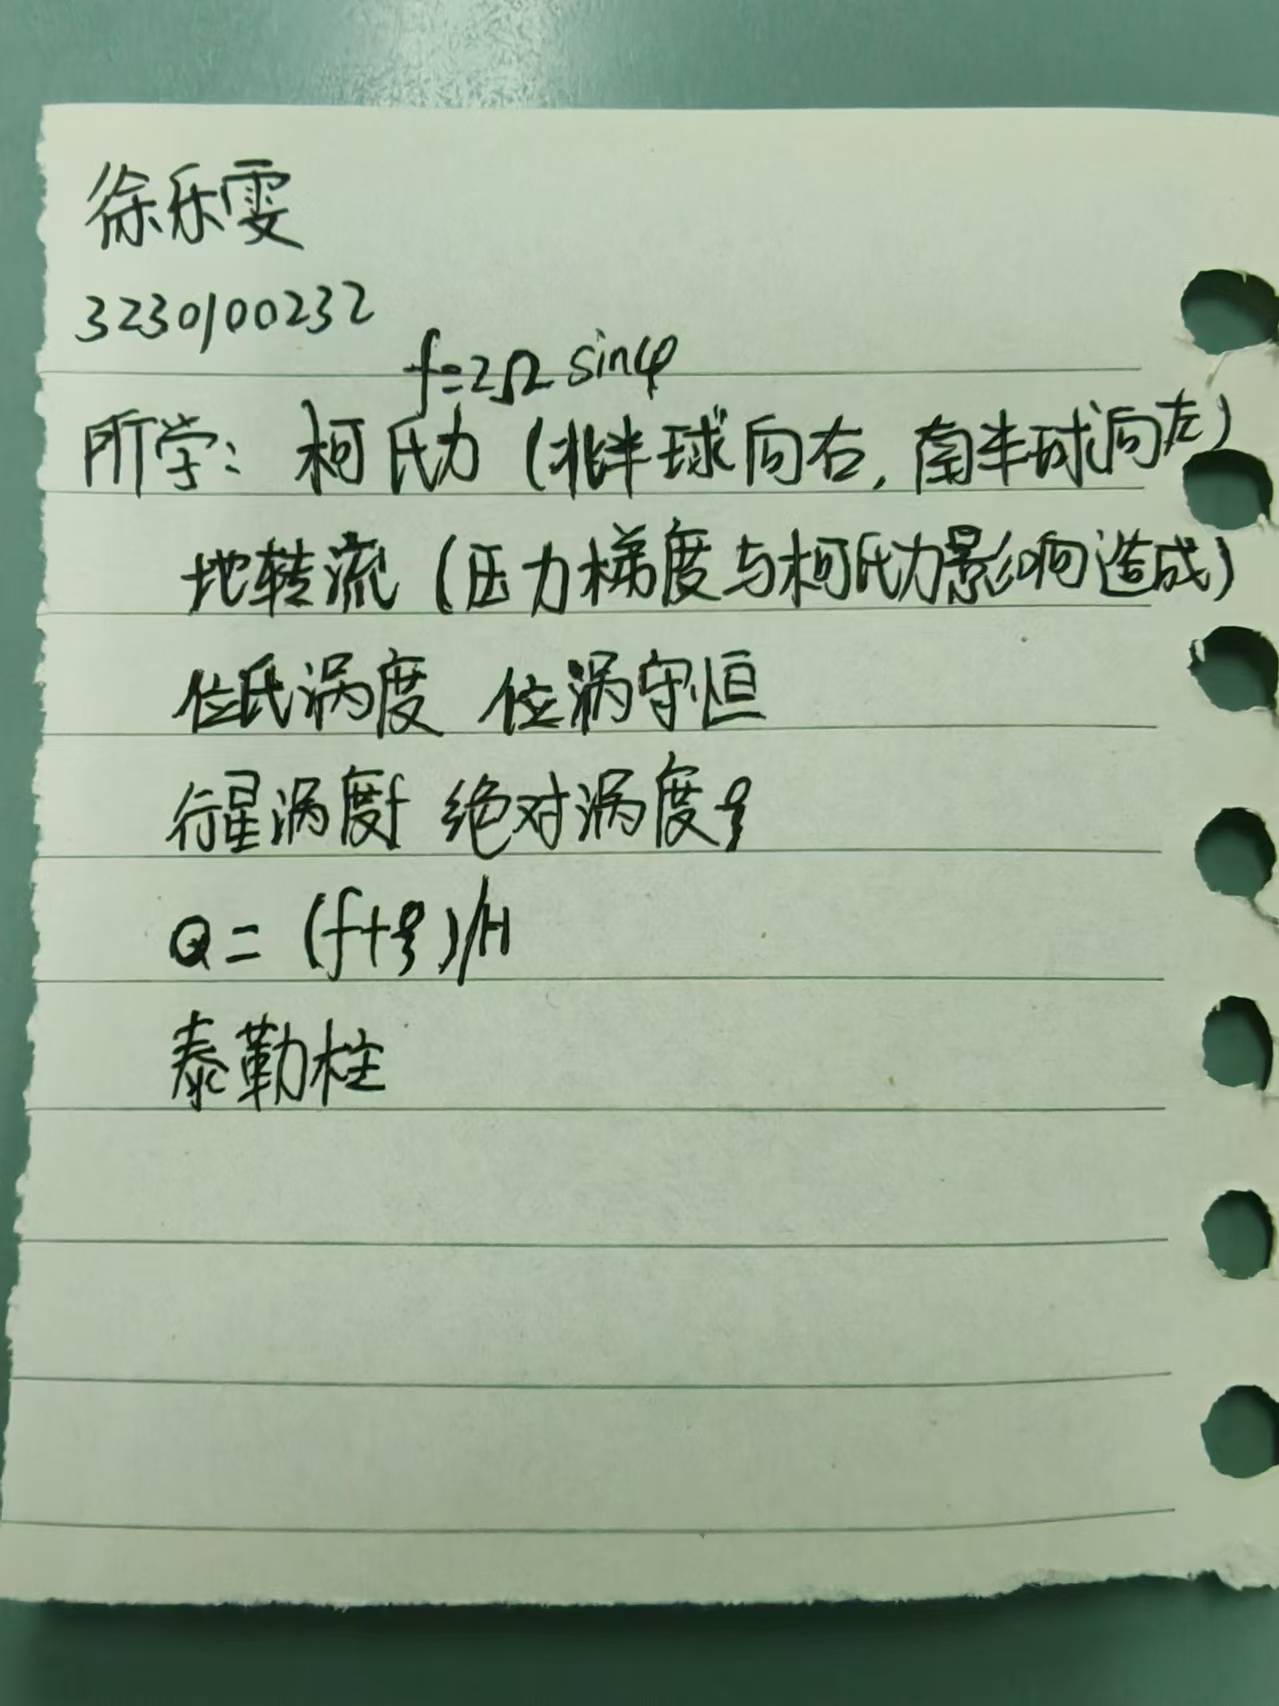 徐乐雯
3230100232
f=2Ω sinφ
所学：柯氏力（北半球向右，南半球向左）
地转流（压力梯度与柯氏力影响造成）
位氏涡度 位涡守恒
行星涡度f 绝对涡度ξ
Q=(f+ξ)/H
泰勒柱